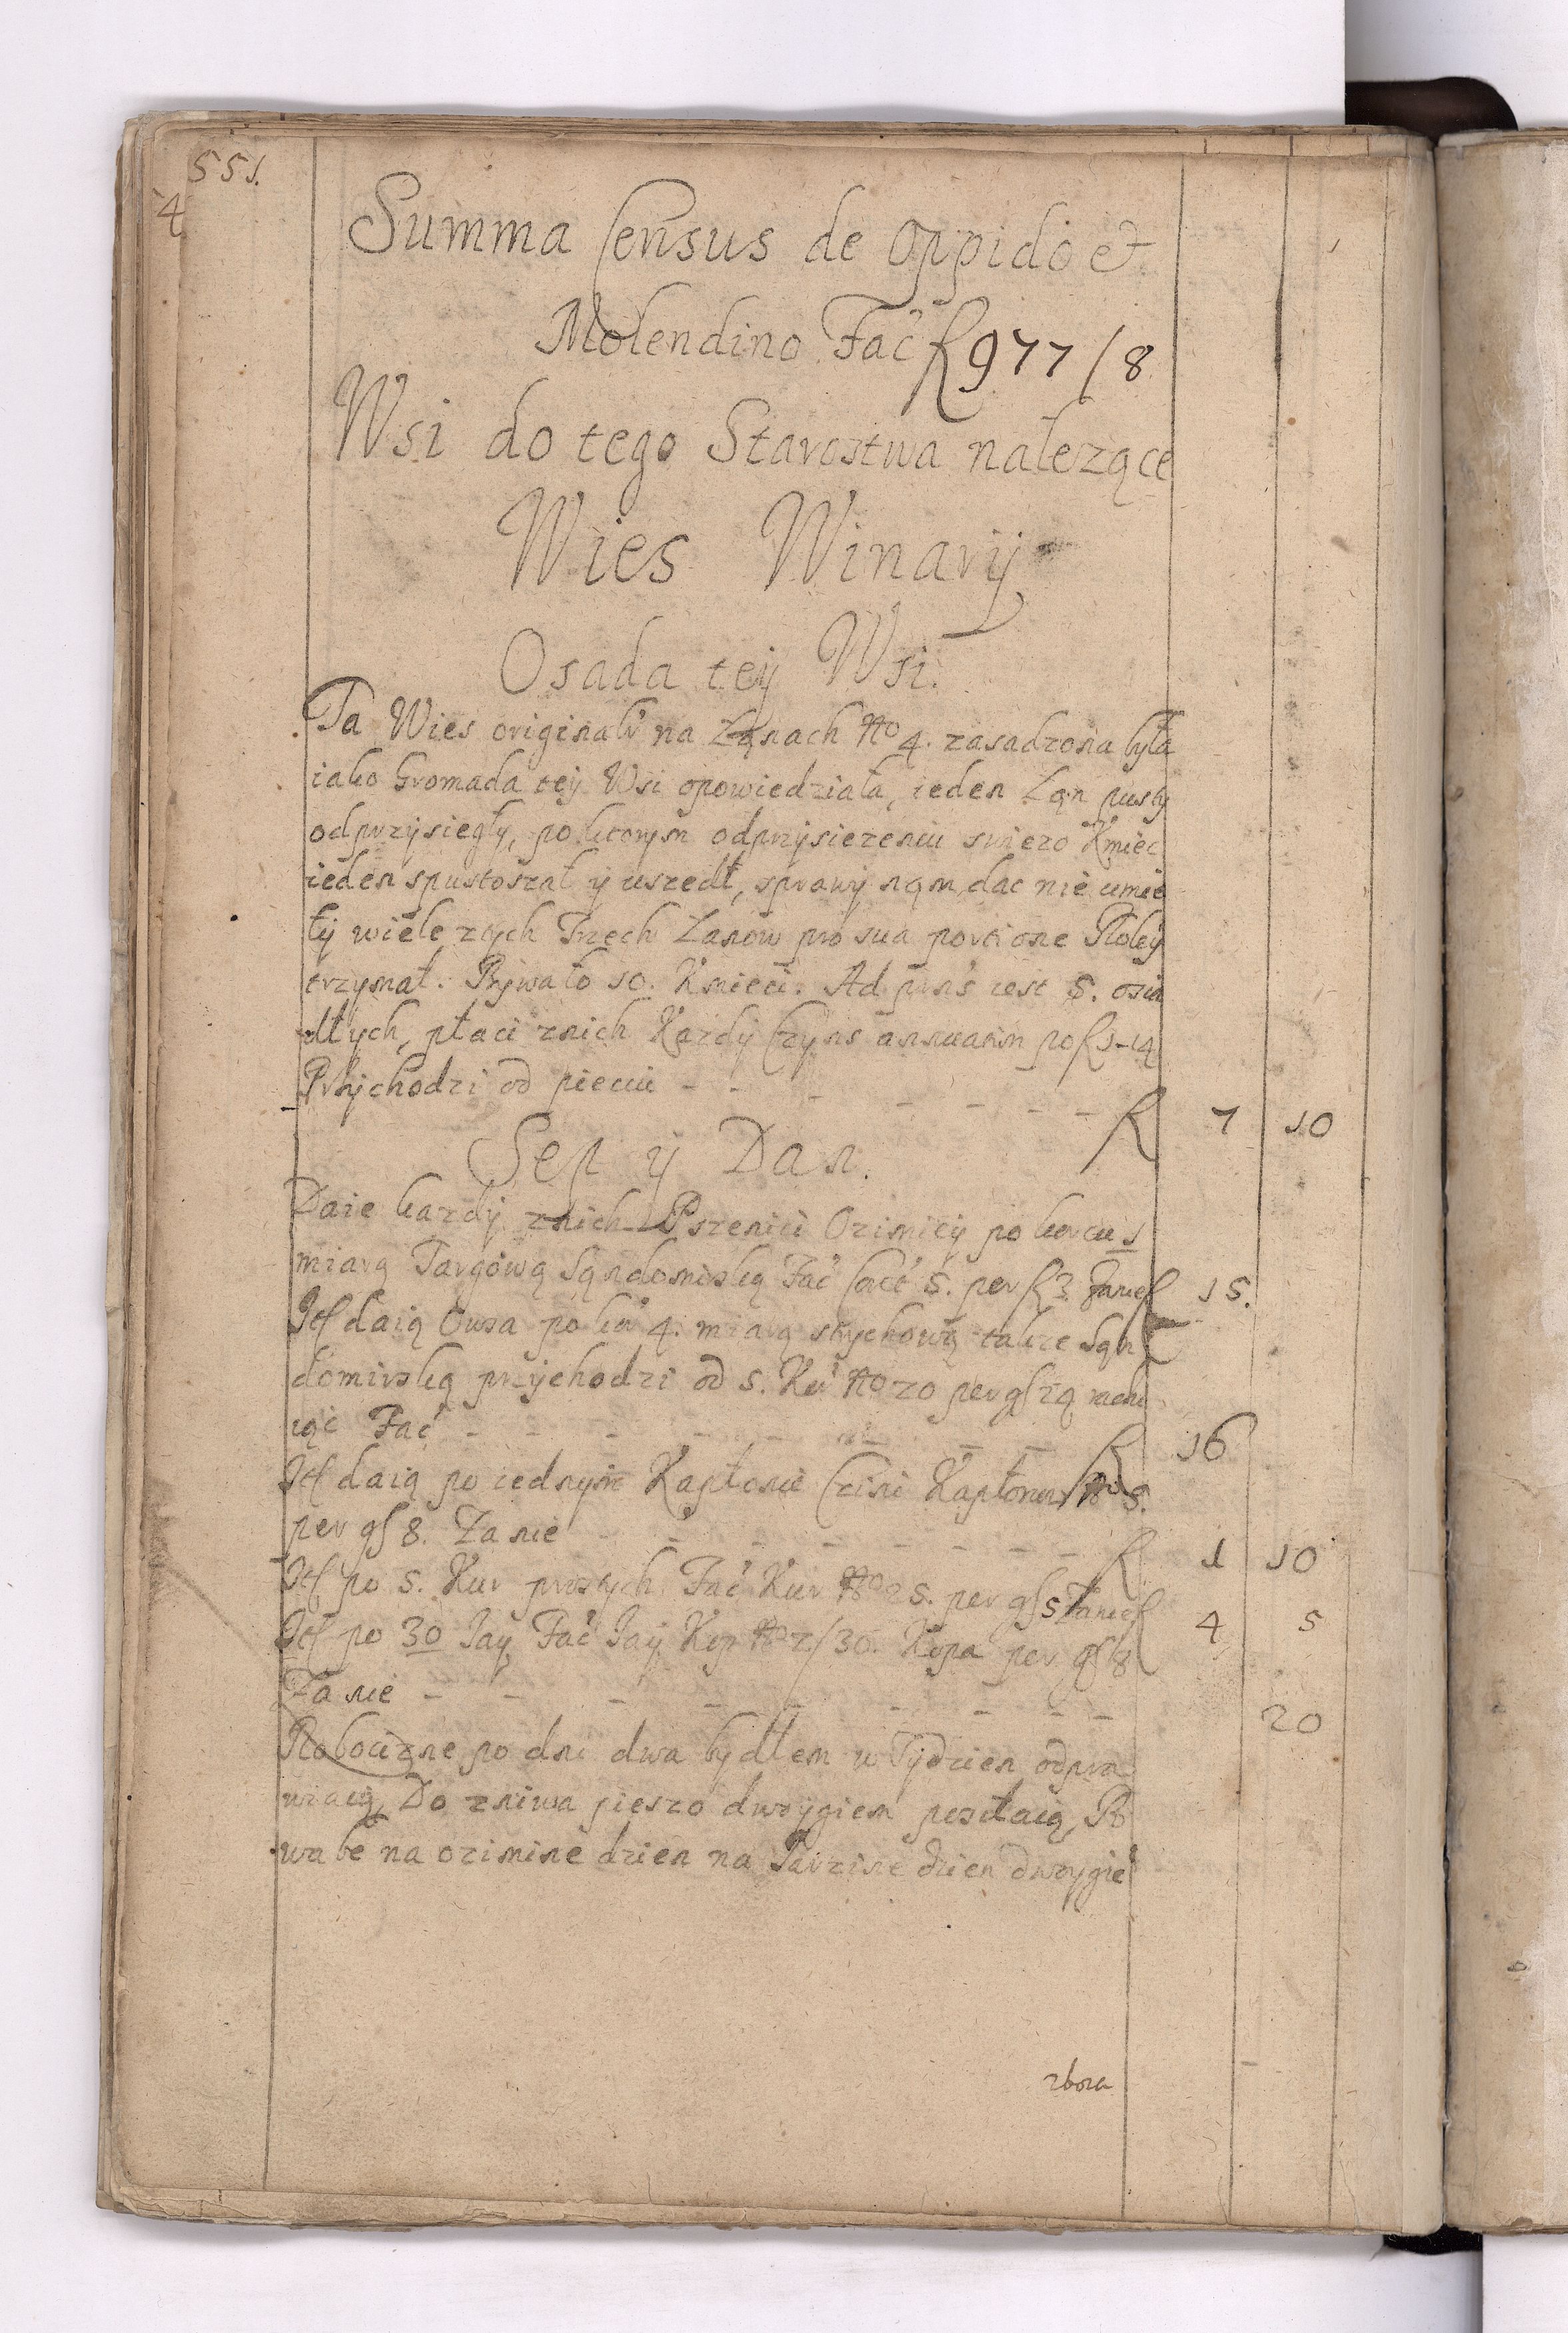 551.
4
Summa Census de Oppido et
Molendino Fac̃ fl 977/8
Wsi do tego Starostwa należące
Wies Winarÿ
Osada teÿ Wsi.
Ta Wies originalr̃ na Łanach Nro 4. zasadzona była
iako Gromada teÿ Wsi opowiedziała, ieden Łan pusty
odprzÿsiegły, po ktorym odprzÿsiezeniu swiezo Kmiec
ieden spustoszał ÿ uszedł, sprawÿ nąm dac nie umie
łÿ wiele z tych Trzech Łanow pro sua portione Roleÿ
trzymał. Bÿwało 10. Kmieci. Ad pr̃ns iest 5. osia
dłych, płaci znich Kazdÿ Czÿns annuatim po fl 1-14
Przÿchodzi od pieciu - - - - - - - fl 7 10
Sep ÿ Dan.
Daie kazdÿ znich Pszenici Ozimicÿ po korcu 1
miarą Targową Sąndomirską Fac̃ Corc̃ 5. per fl 3 Zanie fl 15.
Itt daią Owsa po kor̃ 4. miarą strychową takze Sąn
domirską przÿchodzi od 5. Kor̃ Nro 20 per gr 24 rachu
iąc Fac̃ - - - - - - - fl 16
Itt daią po iednÿm Kapłonie Czini Kapłonow Nro 5.
per gr 8. Za nie - - - - - - - fl 1 10
Itt po 5. Kur prostych Fac̃ Kur Nro 25. per gr 5 Zanie fl 4 5
Itt po 30 Iaÿ, Fac̃ Iaÿ Kop Nro 2/30. Kopa per gr 8
Za nie - - - - - - - - 20
Robocizne po dni dwa bydłem w Tÿdzien odpra
wiaią, Do zniwa pieszo dwzygiem posiłaią, Po
wabe na ozimine dzien na Jarzine dzien dwzygie
zbora